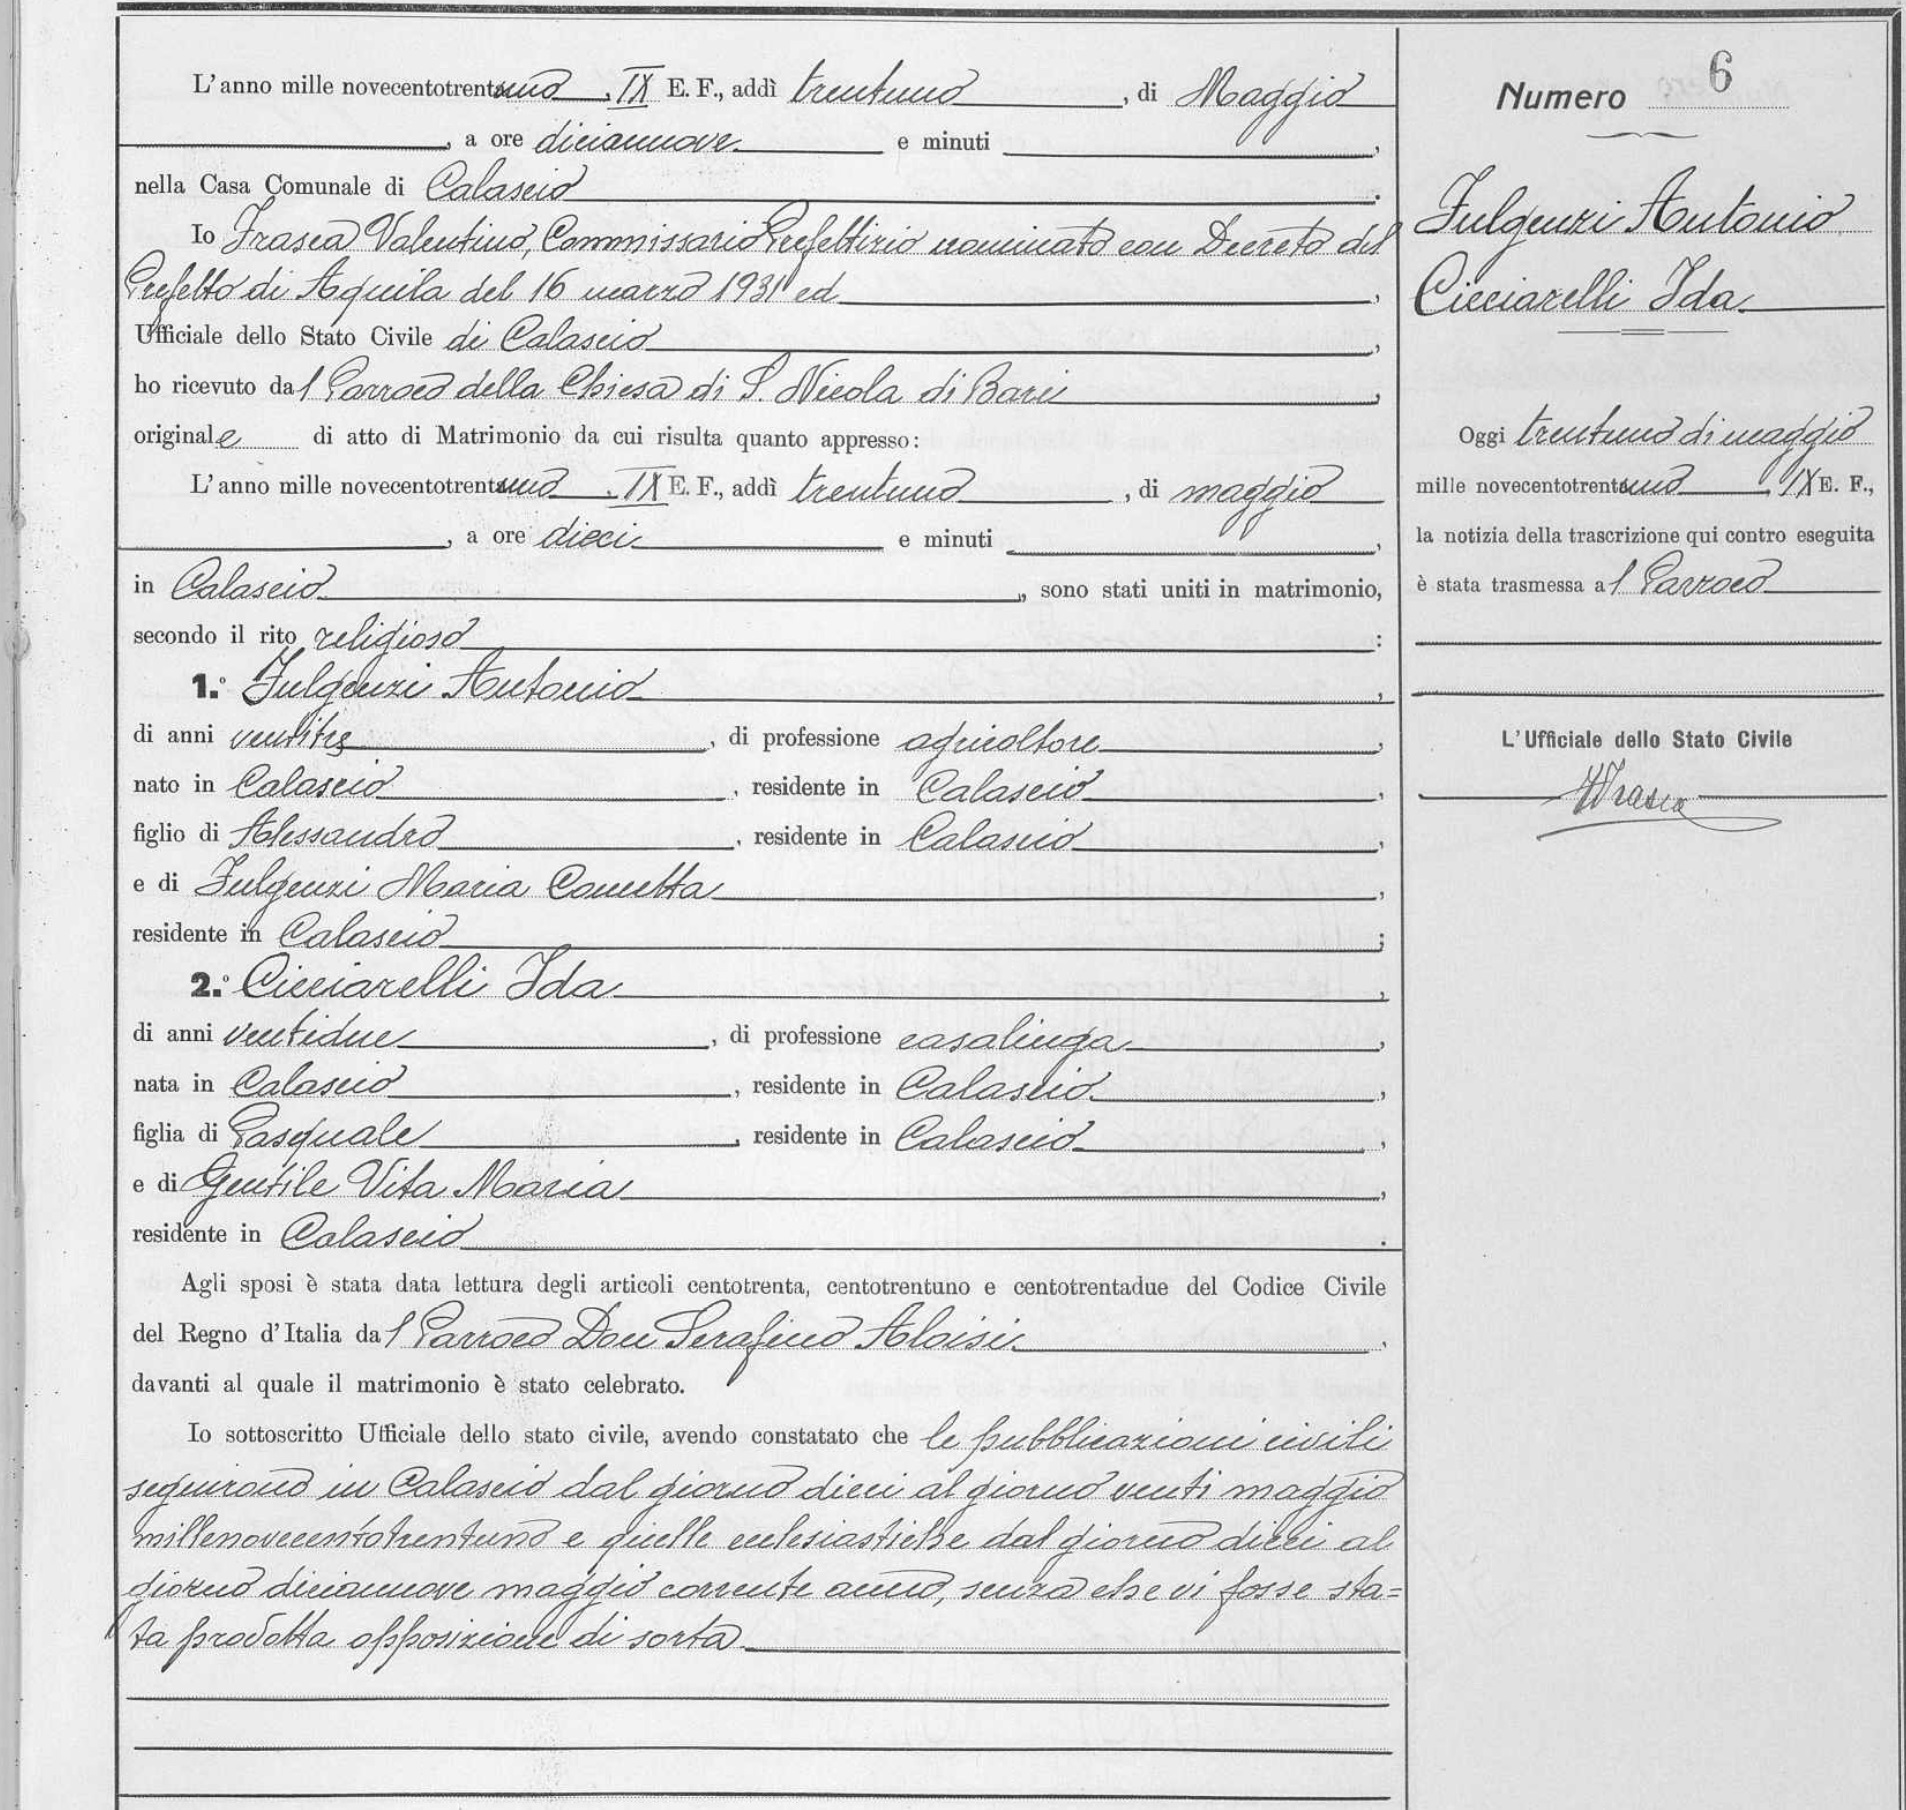 L'anno mille novecentotrentuno, IX E. F., addì trentuno, di Maggio
, a ore diciannove e minuti ,
nella Casa Comunale di Calascio.
Io Frasca Valentino, Commissario Prefettizio nominato con Decreto del
Prefetto di Aquila del 16 marzo 1931 ed ,
Ufficiale dello Stato Civile di Calascio,
ho ricevuto dal Parroco della Chiesa di S. Nicola di Bari,
originale di atto di Matrimonio da cui risulta quanto appresso:
L'anno mille novecentotrentuno, IX E. F., addì trentuno, di maggio
, a ore dieci e minuti ,
in Calascio, sono stati uniti in matrimonio,
secondo il rito religioso:
1.° Fulgenzi Antonio,
di anni ventitre, di professione agricoltore,
nato in Calascio, residente in Calascio,
figlio di Alessandro, residente in Calascio,
e di Fulgenzi Maria Concetta,
residente in Calascio;
2.° Cicciarelli Ida,
di anni ventidue, di professione casalinga,
nata in Calascio, residente in Calascio,
figlia di Pasquale, residente in Calascio,
e di Gentile Vita Maria,
residente in Calascio.
Agli sposi è stata data lettura degli articoli centotrenta, centotrentuno e centotrentadue del Codice Civile
del Regno d'Italia dal Parroco Don Serafino Aloisi,
davanti al quale il matrimonio è stato celebrato.
Io sottoscritto Ufficiale dello stato civile, avendo constatato che le pubblicazioni civili
seguirono in Calascio dal giorno dieci al giorno venti maggio
millenovecentotrentuno e quelle ecclesiastiche dal giorno dieci al
giorno diciannove maggio corrente anno, senza che vi fosse sta=
ta prodotta opposizione di sorta
Numero 6
Fulgenzi Antonio
Cicciarelli Ida
Oggi trentuno di maggio
mille novecentotrentuno, IX E. F.,
la notizia della trascrizione qui contro eseguita
è stata trasmessa al Parroco
L'Ufficiale dello Stato Civile
VFrasca